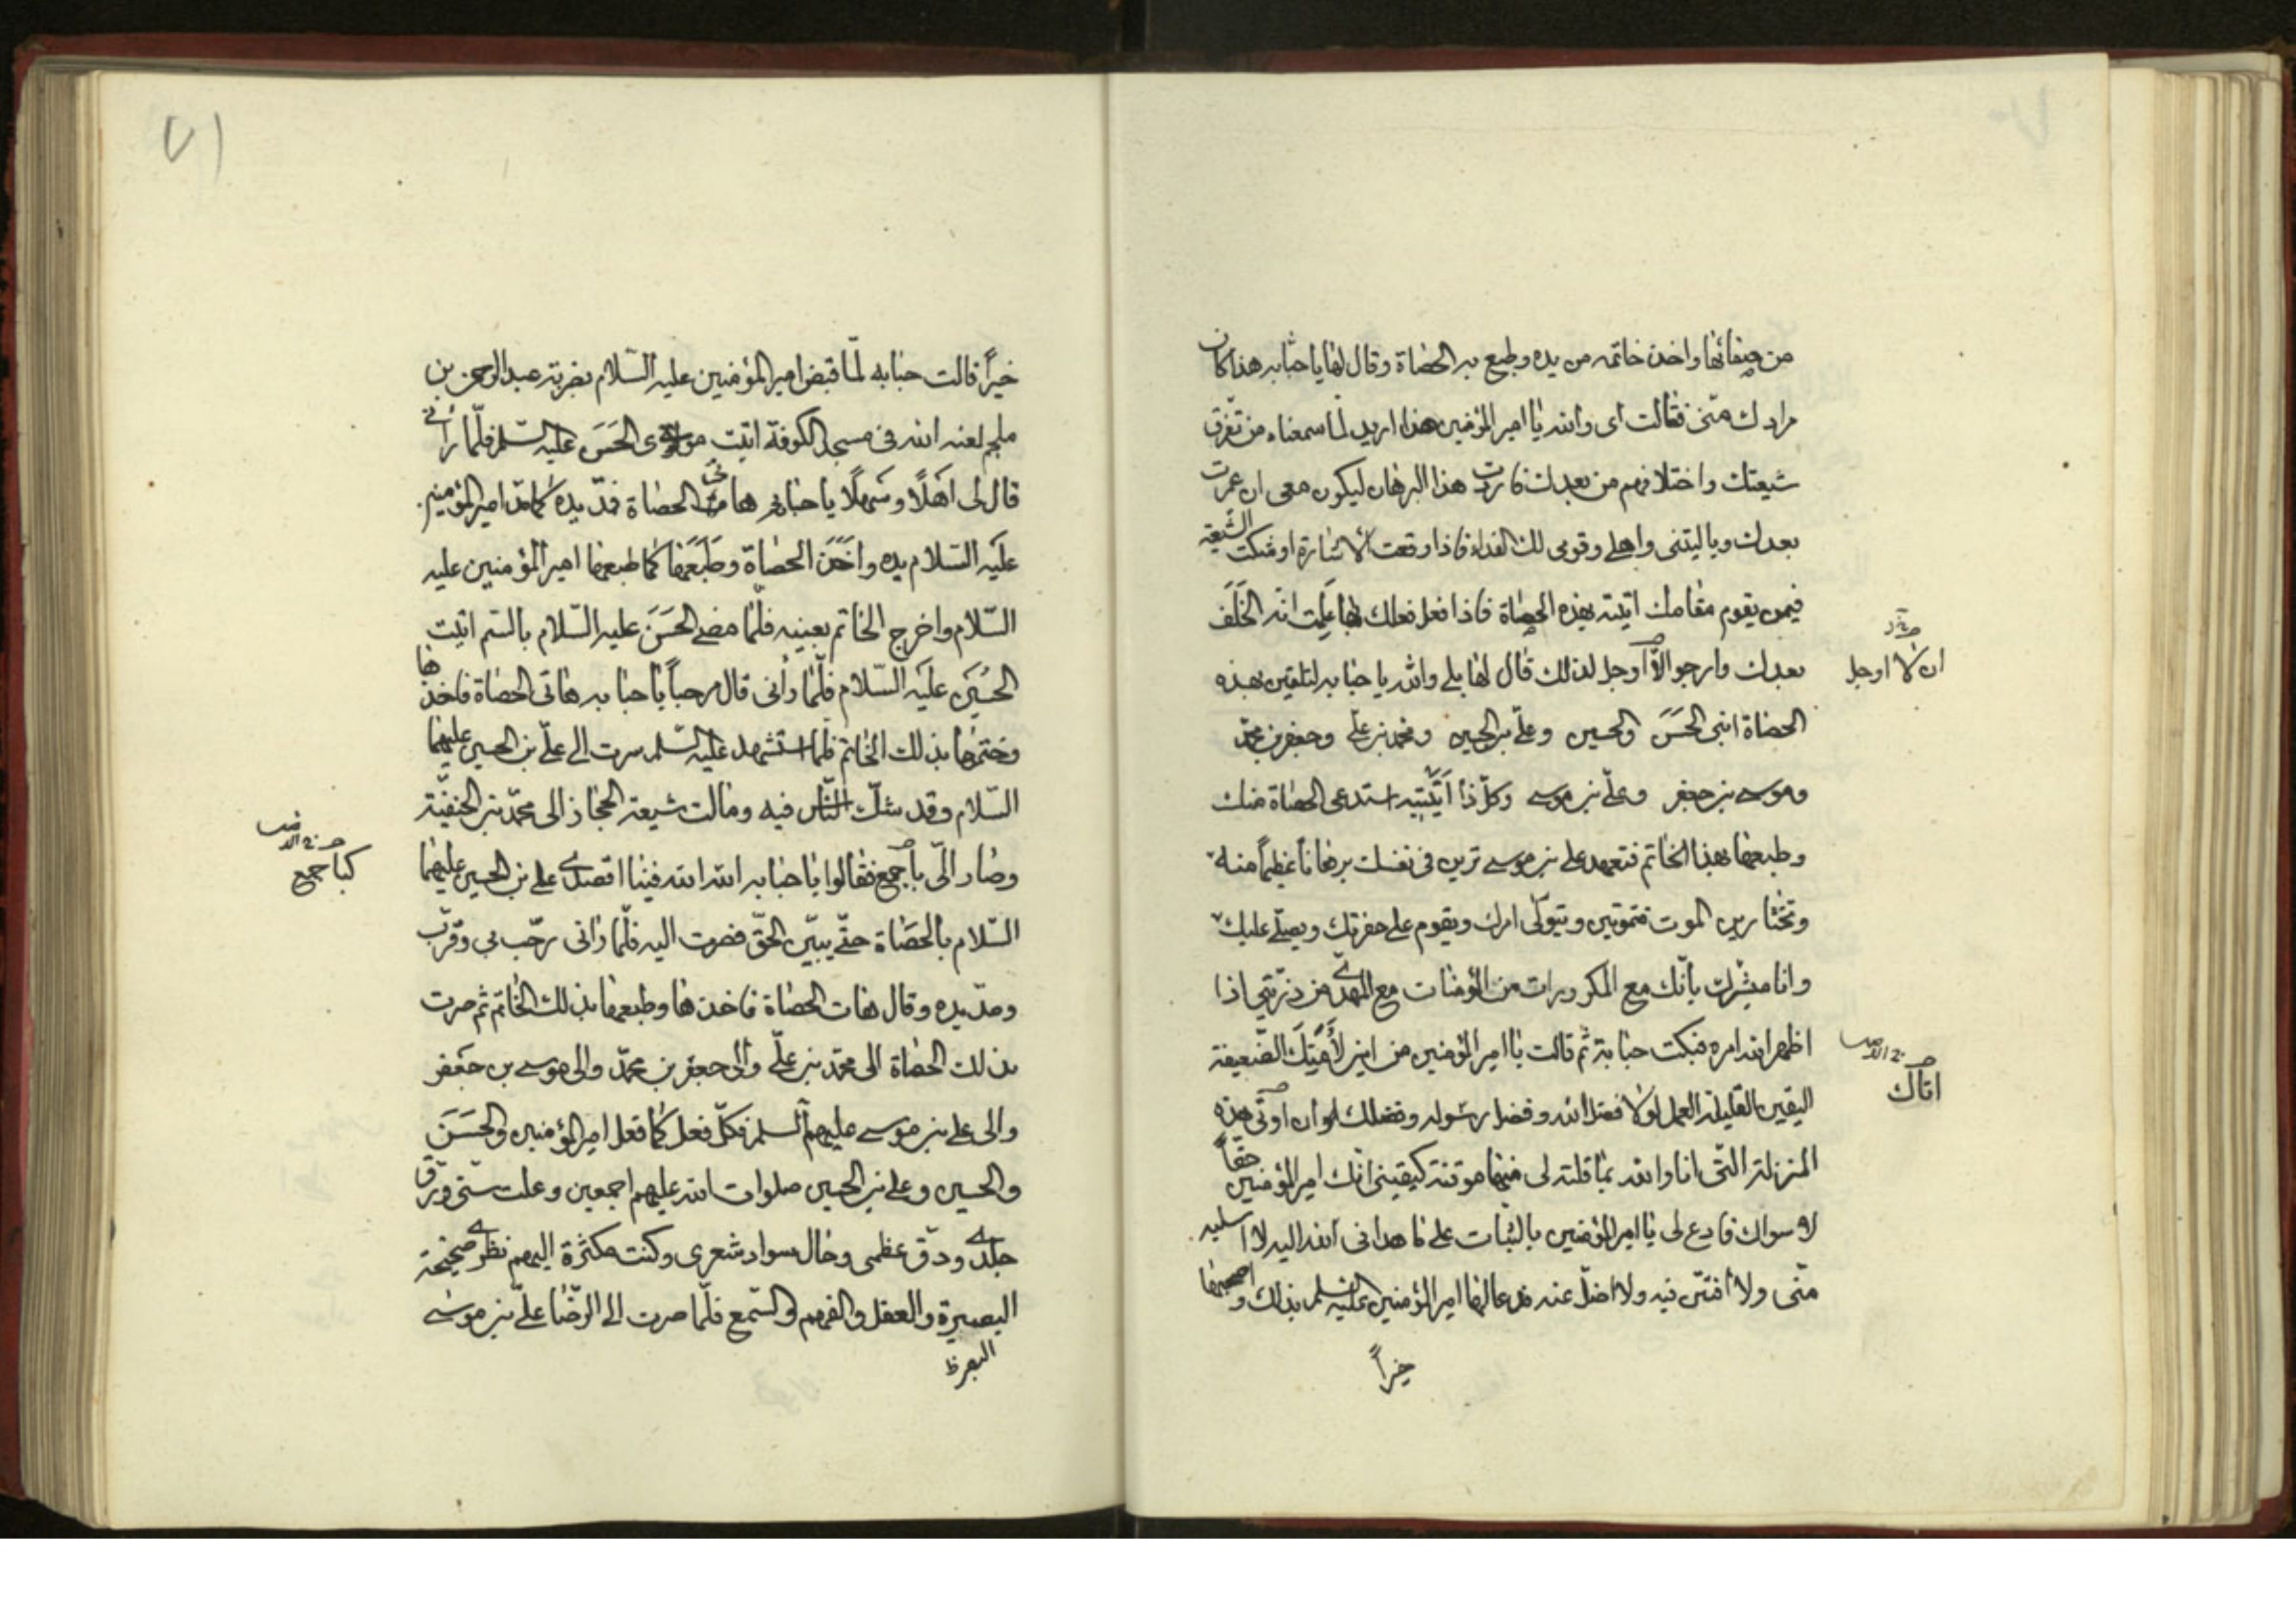 من صفائها واخذ خاتمه من يده وطبع به الحصاة وقال لها يا حبابه هذا كان
مرادك منّى فقالت اى والله يا امير المؤمنين هذا اريد لما سمعناه من تفرّق
شيعتك واختلافهم من بعدك فاردت هذا البرهان ليكون معى ان عمرت
بعدك ويا ليتنى واهلى وقومى لك الفداء فاذا وقعت الاشارة او شكت الشيعة
فيمن يقوم مقامك اتيته بهذه الحصاة فاذا فعل فعلك بها علمت انه الخلف
بعدك وارجو الّا اوجل لذلك قال لها بلى والله يا حبابه لتلقين بهذه
ان لا اوجل
الحصاة ابنى الحَسَن والحسين وعلّى بن الحسين ومحمد بن علّى وجعفر بن محمّد
وموسى بن جعفر وعلّى بن موسى وكلّ ذا اتيته استدعى الحصاة منك
وطبعها بهذا الخاتم فتعهد على بن موسى ترين فى نفسك برهانا عظيماً منه
وتختارين الموت فتموتين ويتولّى امرك ويقوم على حفرتك ويصلّى عليك
وانا مبشرك بأنّك مع المكرورات من المؤمنات مع المهدّى من ذرّيتى اذا
اظهر الله امره فبكت حبابة ثم قالت يا امير المؤمنين من اين لأمتك الضّعيفة
اليقين القليلة العمل لولا فضل الله وفضل رسوله وفضلك لو ان اوتى هذه
اتاك
المنزلة التّى انا والله بما قلته لى منها موقنة كيقينى انّك امير المؤمنين حقّاً
لا سواك فادع لى يا امير المؤمنين بالثبات على ما هدانى الله اليه لا اسلبه
منّى ولا افتتن فيه ولا اضلّ عنه فدعا لها امير المؤمنين عليه السلم بذلك و اصحبها
خيراً
٧١
خيراً قالت حبابه لمّا قبض امير المؤمنين عليه السّلام بضربة عبد الرحمن بن
ملجم لعنه الله فى مسجد الكوفة اتيت مولاى الحَسَن عليه السّلم فلمّا رأنى
قال لى اهلًا وسهلًا يا حبابه هاتى الحصاة فمدّ يده كما مدّ امير المؤمنين
عليه السّلام يده واخذ الحصاة وطبعها كما طبعها امير المؤمنين عليه
السّلام واخرج الخاتم بعينه فلمّا مضى الحَسَن عليه السّلام بالسّم اتيت
الحُسَين عليه السّلام فلمّا رأنى قال مرحباً يا حبابه هاتى الحصاة فاخذها
وختمها بذلك الخاتم فلما استشهد عليه السّلم سرت الى علّى بن الحسين عليهما
السّلام وقد شكّ النّاس فيه ومالت شيعة الحجاز الى محمّد بن الحنفيّة
وصار الىّ باجمع فقالوا يا حبابه الله الله فينا اقصدى على بن الحسين عليهما
كبا جمع
السّلام بالحصاة حتّى يبيّن الحقّ فصرت اليه فلمّا رانى رحّب بى وقرّب
ومدّ يده وقال هات الحصاة فاخذها وطبعها بذلك الخاتم ثم صرت
بذلك الحصاة الى محمّد بن علّى والى جعفر بن محمّد والى موسى بن جعفر
والى على بن موسى عليهم السلم فكلّ فعل كما فعل امير المؤمنين والحَسَن
والحسين وعلى بن الحسين صلوات الله عليهم اجمعين وعلت سنّى ورّق
جلدى ودقّ عظمى وحال سواد شعرى وكنت مكثرة اليهم نظرى صحيحة
البصيرة والعقل والفهم والسّمع فلمّا صرت الى الرضّا علّى بن موسى
البصر ظ